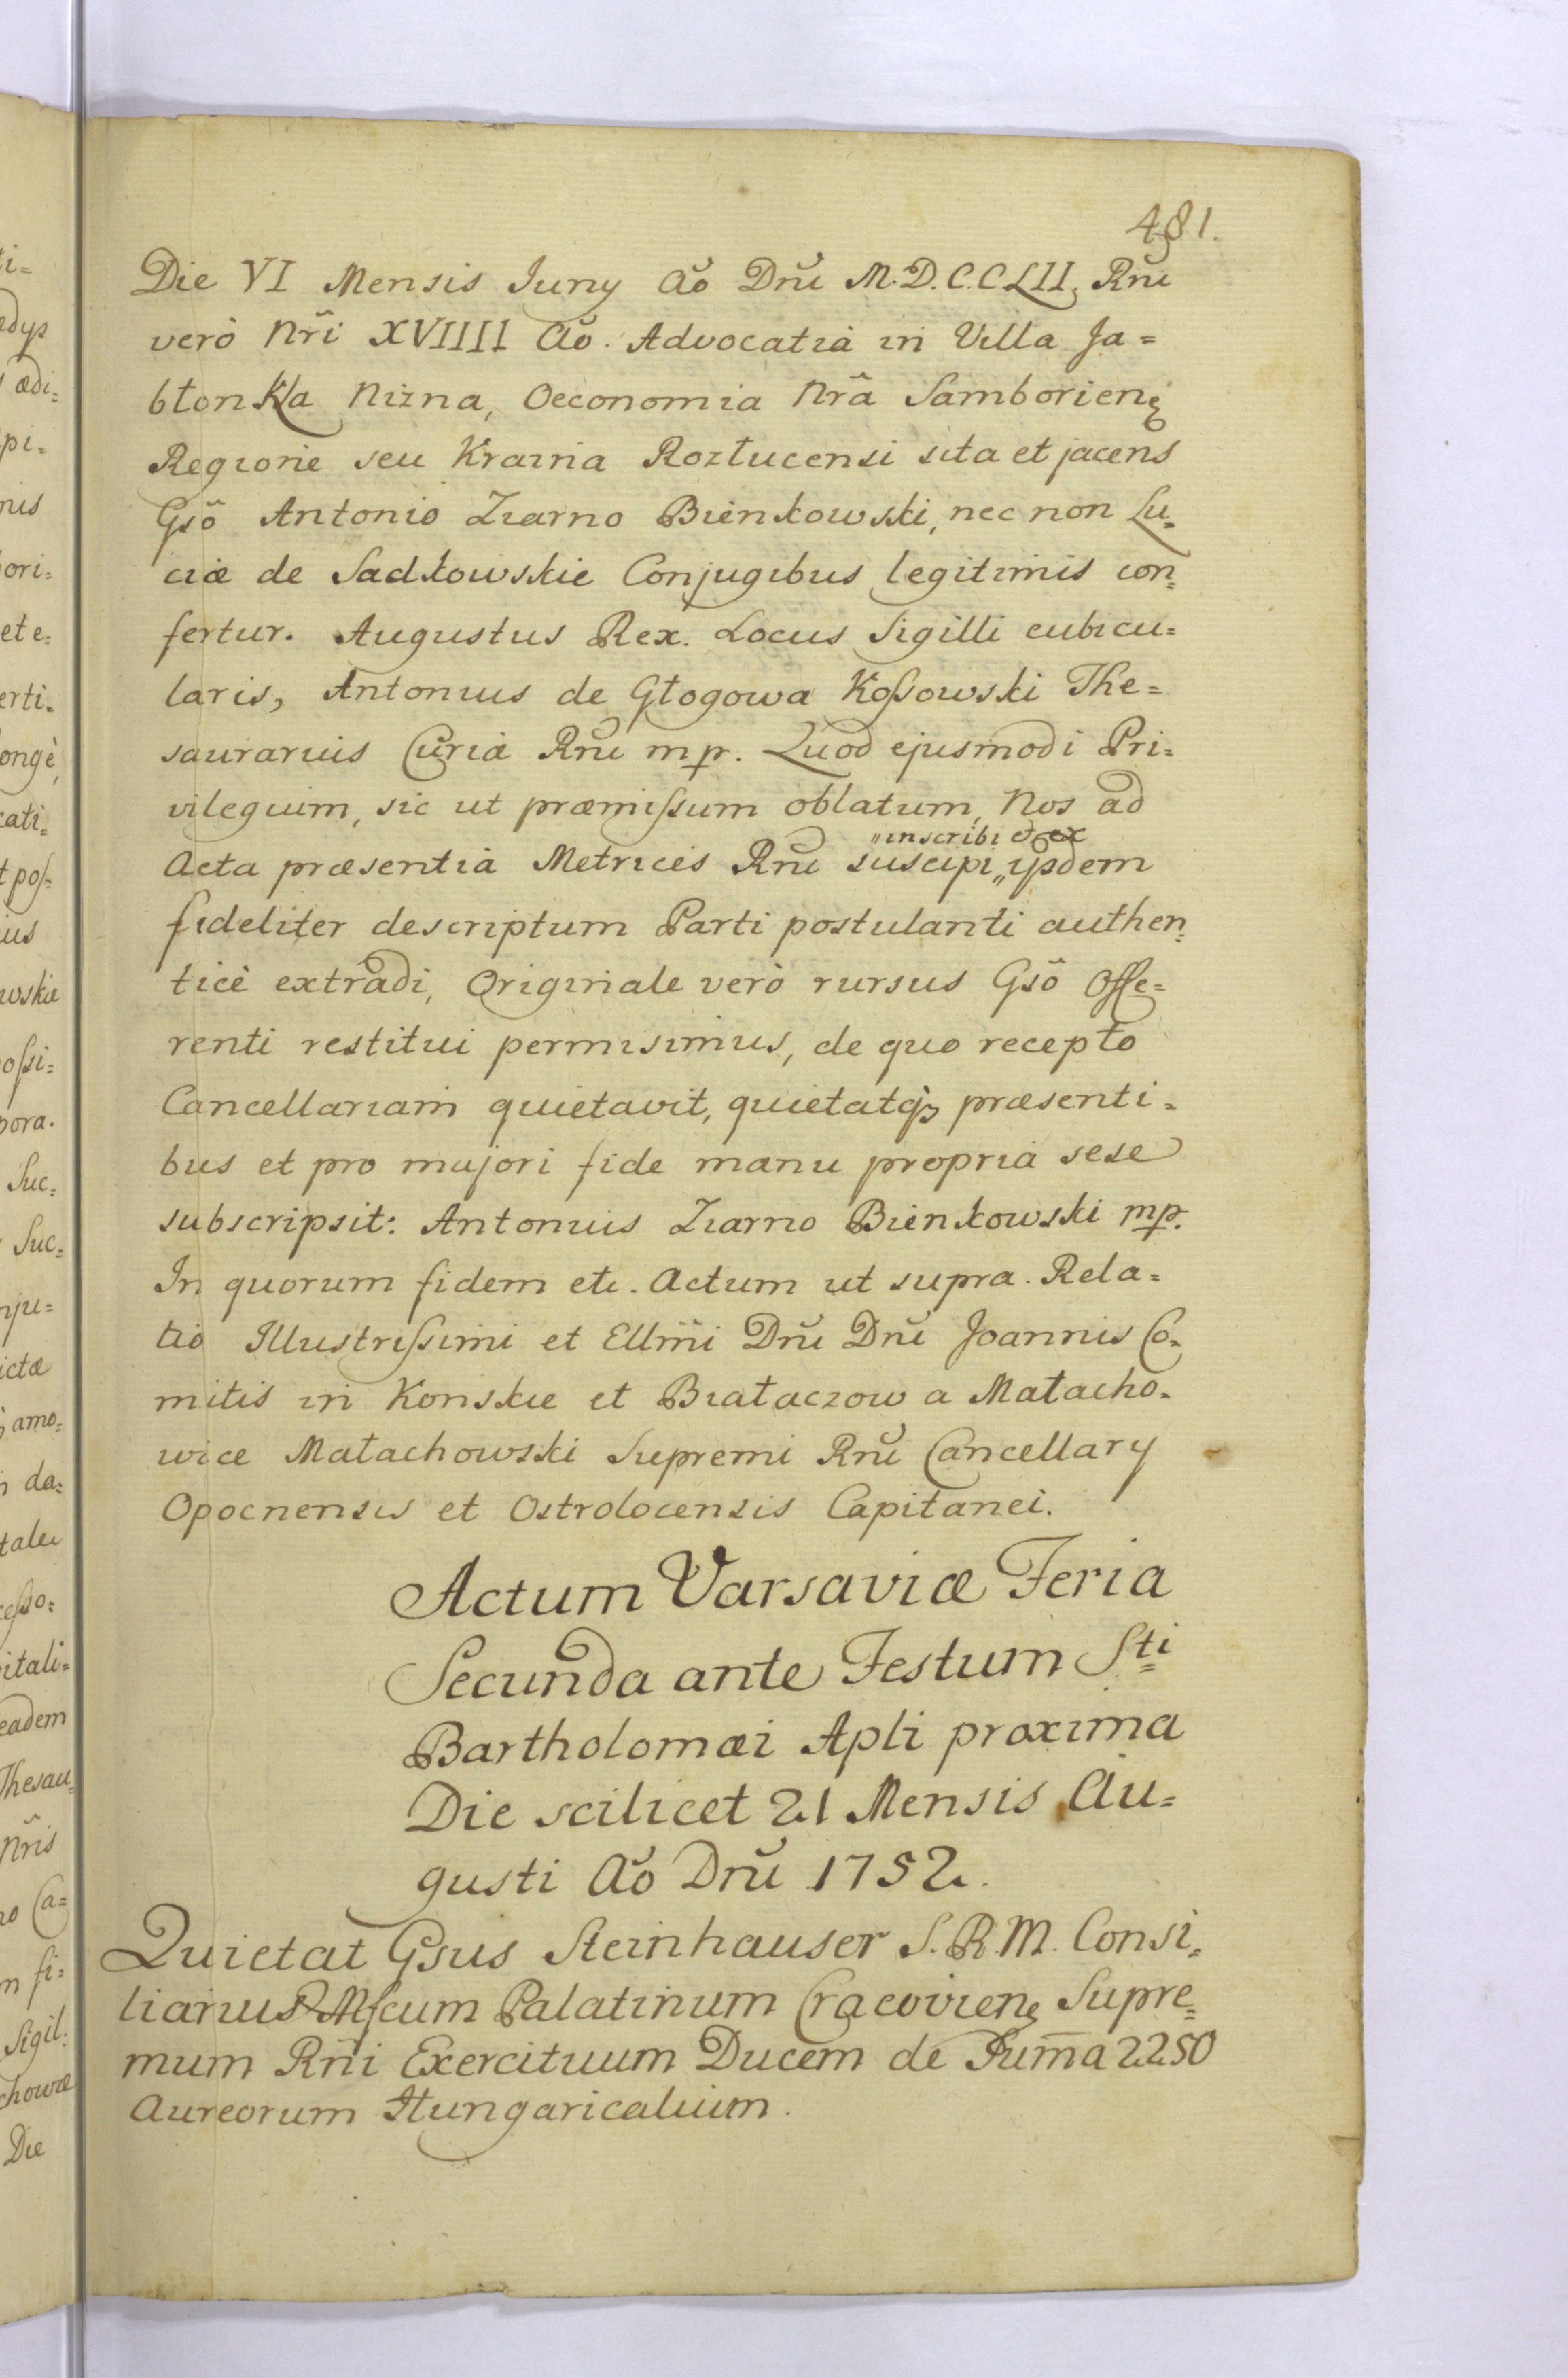 481.
Die VI Mensis Juny Ao Dni M.D.C.CLII, Rni
verò Nri XVIIII Ao. Advocatia in Villa Ja=
błonka Nizna, Oeconomia Nrâ Samborien
Regione seu Kraina Rozłucensi sita et jacens
Gsõ Antonio Ziarno Bienkowski, nec non Lu=
ciæ de Sadkowskie Conjugibus legitimis con=
fertur. Augustus Rex. Locus Sigilli cubicu=
laris, Antonius de Głogowa Kossowski The=
saurarius Curiæ Rni mp. Quod ejusmodi Pri=
vilegium, sic ut præmissum oblatum, Nos ad
"inscribi et ex
Acta præsentia Metrices Rni suscipi,, ijsdem
fideliter descriptum Parti postulanti authen=
ticè extradi, Originale verò rursus Gsõ Offe=
renti restitui permisimus, de quo recepto
Cancellariam quietavit, quietatq3 præsenti=
bus et pro majori fide manu propria sese
subscripsit: Antonius Ziarno Bienkowski mp.
In quorum fidem etc. Actum ut supra. Rela=
tio Illustrissimi et Ellmi Dni Dni Joannis Co=
mitis in Konskie et Białaczow a Małacho=
wice Małachowski Supremi Rni Cancellary
Opocnensis et Ostrolocensis Capitanei.
Actum Varsaviæ Feria
Secunda ante Festum Sti
Bartholomæi Apli proxima
Die scilicet 21 Mensis Au=
gusti Ao Dni 1752.
Quietat Gsus Steinhauser S.R.M. Consi=
liarius Mfcum Palatinum Cracovien Supre=
mum Rni Exercituum Ducem de Suma 2250
Aureorum Hungaricalium.